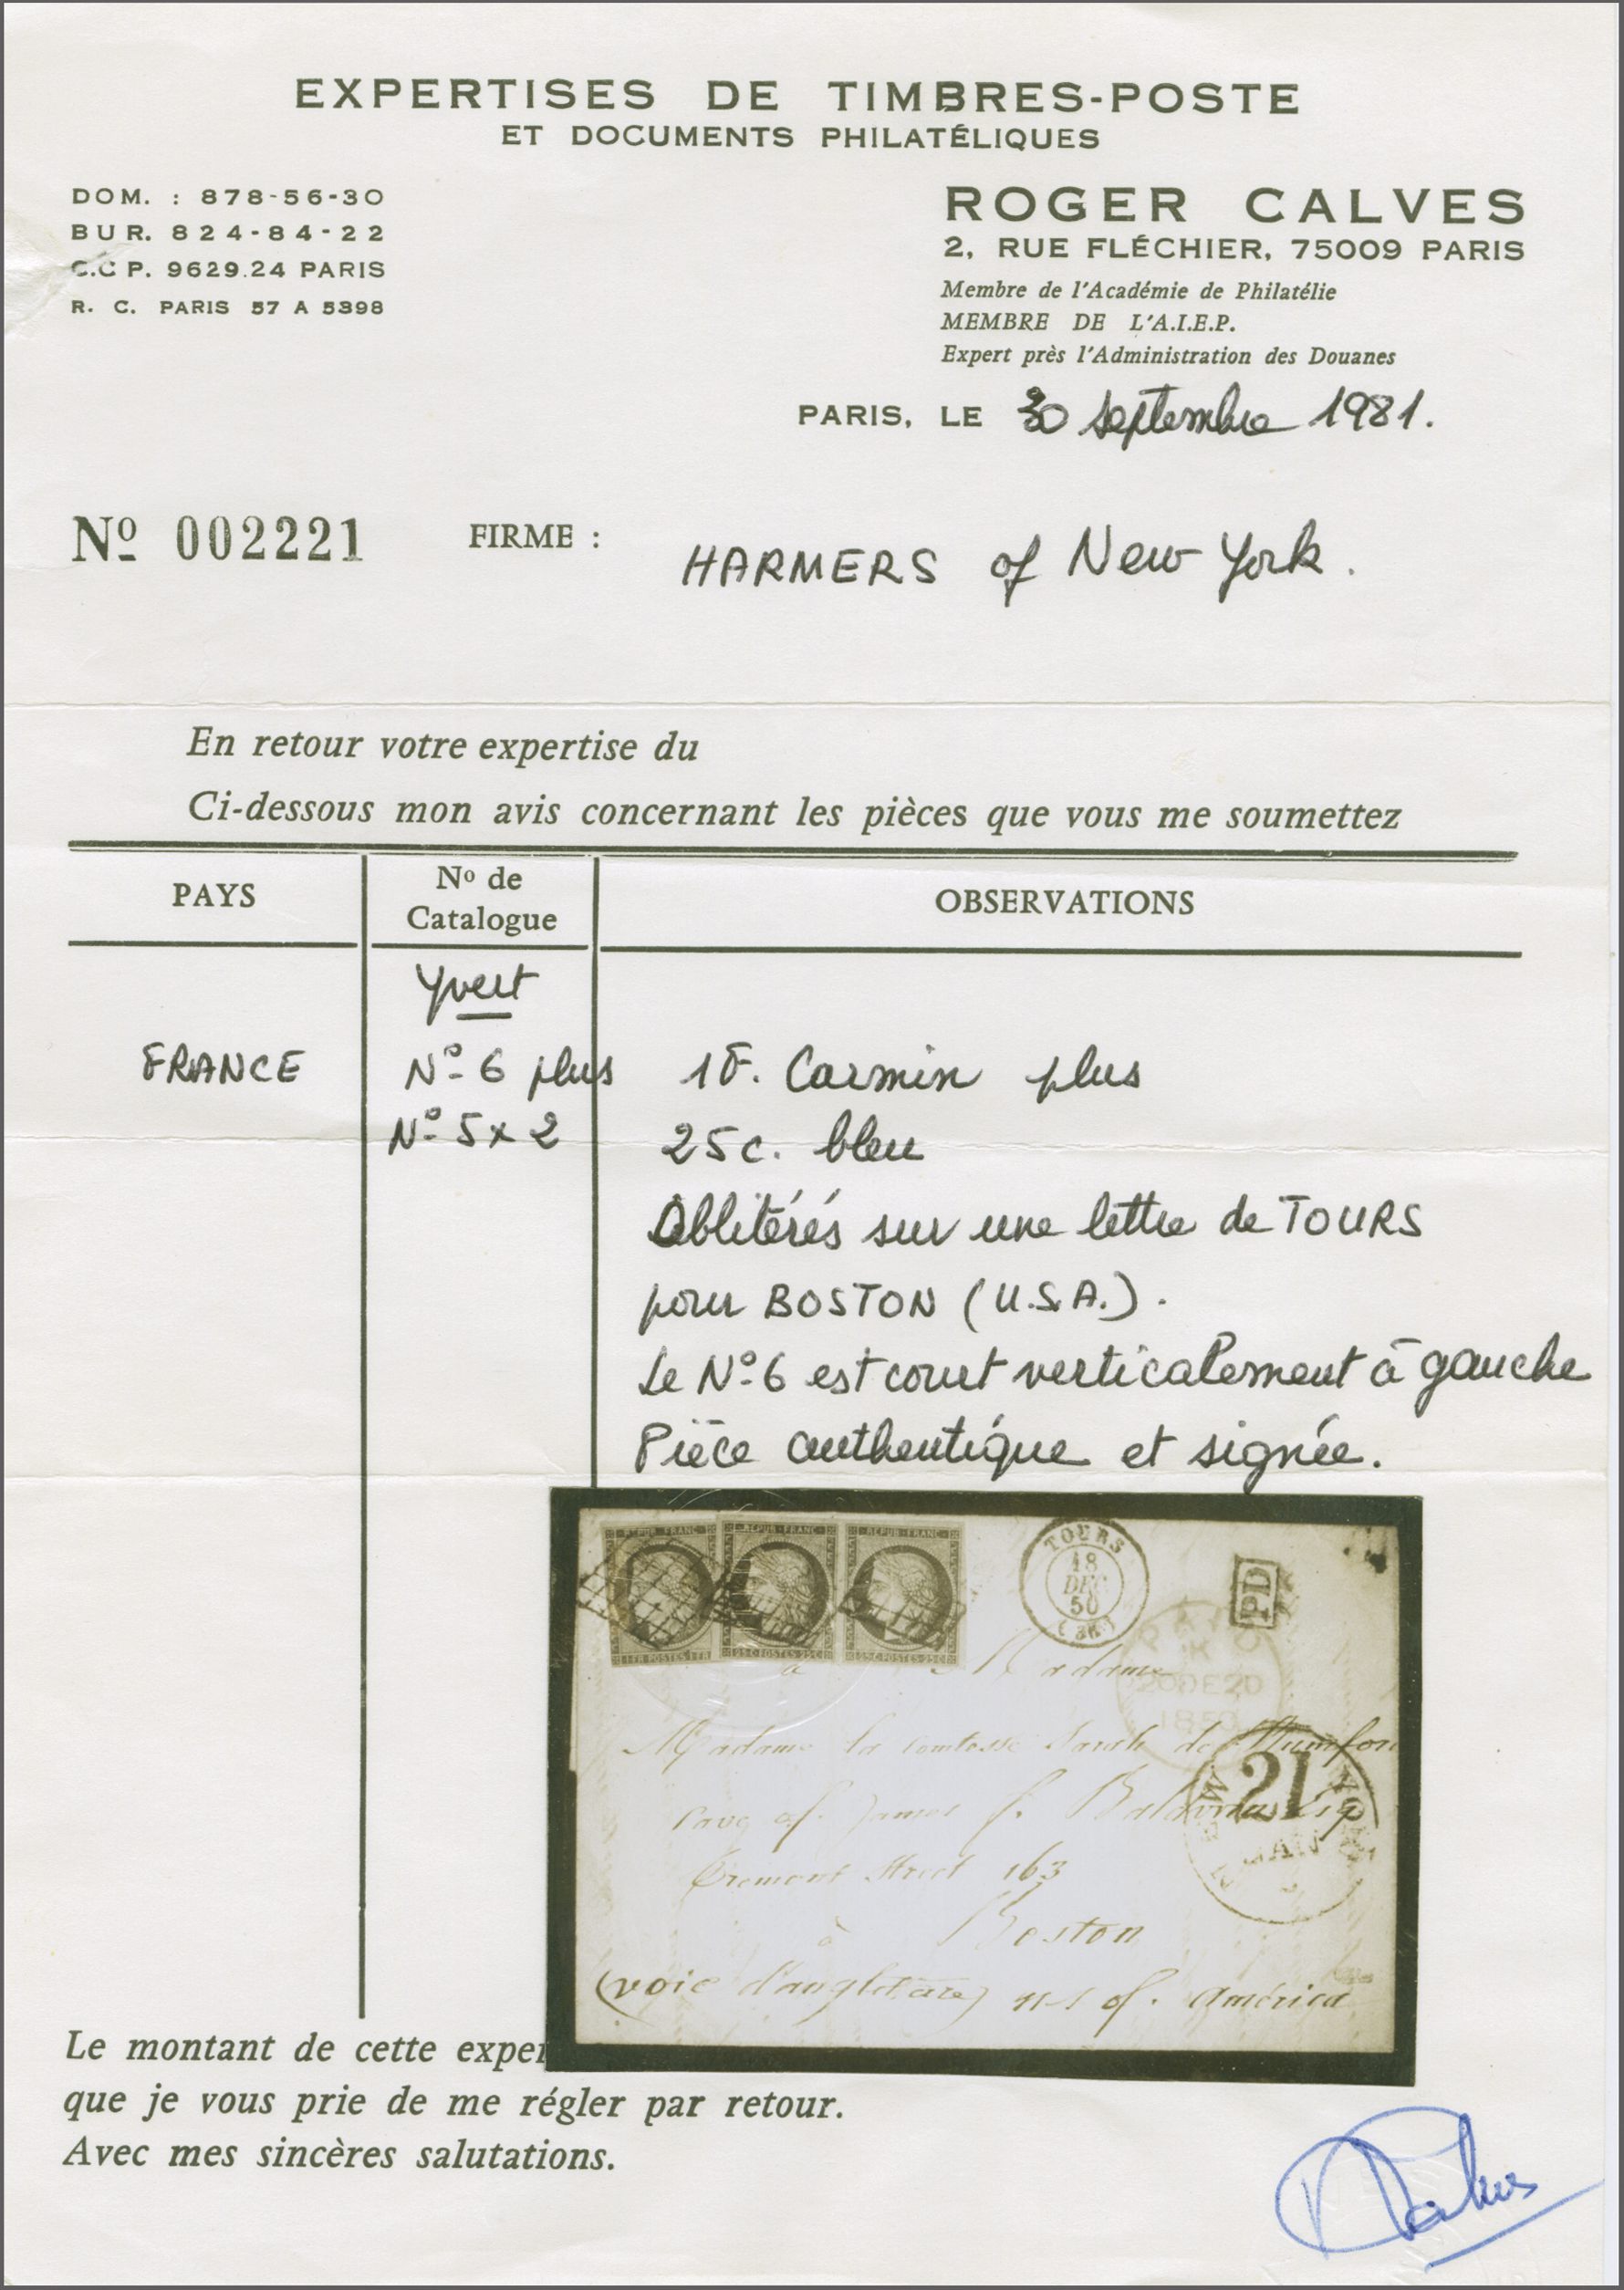 EXPERTISES DE TIMBRES-POSTE
ET DOCUMENTS PHILATÉLIQUES
DOM. : 878-56-30
BUR. 824-84-22
C.C P. 9629.24 PARIS
R. C. PARIS 57 A 5398
ROGER CALVES
2, RUE FLÉCHIER, 75009 PARIS
Membre de l'Académie de Philatélie
MEMBRE DE L'A.I.E.P.
Expert près l'Administration des Douanes
PARIS, LE 30 septembre 1981.
Nº 002221
FIRME : HARMERS of New York.
En retour votre expertise du
Ci-dessous mon avis concernant les pièces que vous me soumettez
PAYS
Nº de
Catalogue
OBSERVATIONS
Yvert
FRANCE Nº 6 plus 1F. Carmin plus
Nº 5x2 25c. bleu
Oblitérés sur une lettre de TOURS
pour BOSTON (U.S.A.).
Le Nº 6 est court verticalement à gauche
Pièce authentique et signée.
REPUB FRANC
REPUB FRANC
REPUB FRANC
1 FR POSTES 1 FR
25C POSTES 25C
25C POSTES 25C
TOURS
18
DEC
50
(36)
PD
20DE20
1850
à Madame
Madame la comtesse Sarah de
of James f.
Tremont Street 163
à Boston
(voie d'angleterre) of. América
NEW YORK
21
JAN
Le montant de cette exper
que je vous prie de me régler par retour.
Avec mes sincères salutations.
Calves